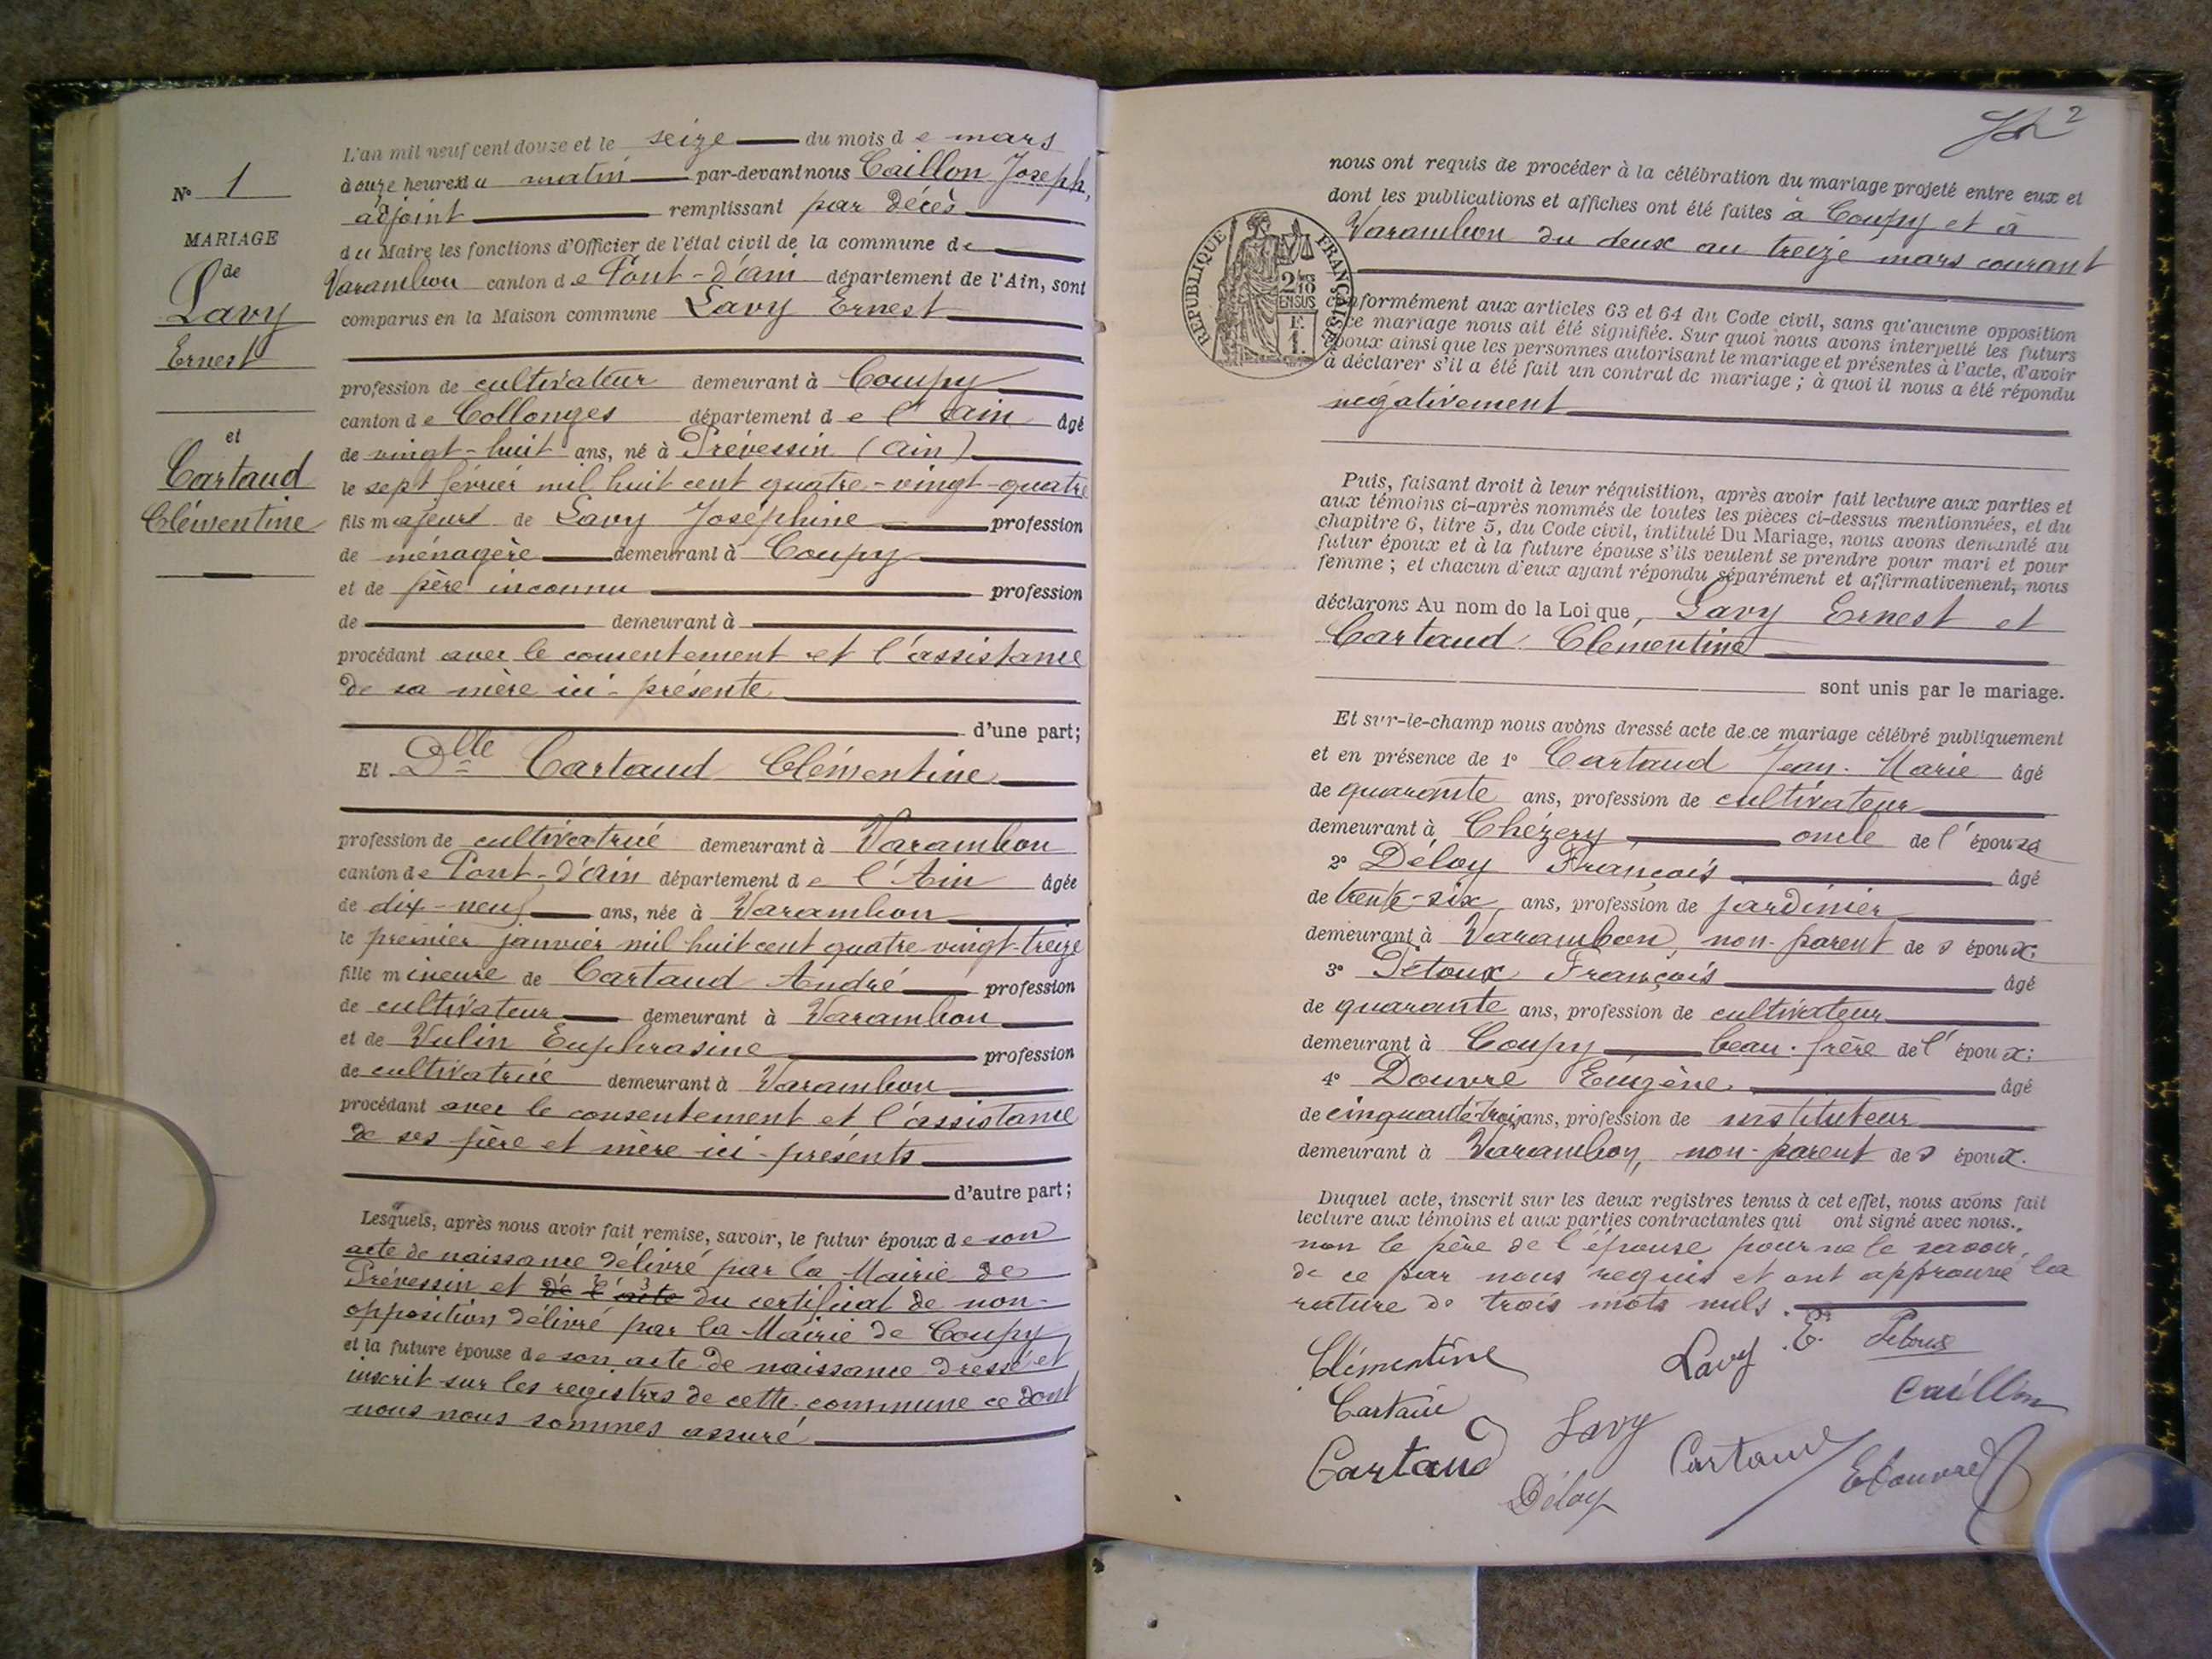 N° 1
MARIAGE
de
Lavy
Ernest
et
Cartaud
Clémentine
L'an mil neuf cent douze et le seize du mois de mars
à onze heures du matin par-devant nous Caillon Joseph,
adjoint remplissant par décès
du Maire les fonctions d'Officier de l'état civil de la commune de
Varambon canton de Pont-d'Ain département de l'Ain, sont
comparus en la Maison commune Lavy Ernest
profession de cultivateur demeurant à Coupy
canton de Collonges département de l'Ain âgé
de vingt-huit ans, né à Prévessin (Ain)
le sept février mil huit cent quatre-vingt-quatre
fils majeur de Lavy Joséphine profession
de ménagère demeurant à Coupy
et de père inconnu profession
de demeurant à
procédant avec le consentement et l'assistance
de sa mère ici-présente
d'une part;
Et Dlle Cartaud Clémentine
profession de cultivatrice demeurant à Varambon
canton de Pont-d'Ain département de l'Ain âgée
de dix-neuf ans, née à Varambon
le premier janvier mil huit cent quatre-vingt-treize
fille mineure de Cartaud André profession
de cultivateur demeurant à Varambon
et de Vulin Euphrasine profession
de cultivatrice demeurant à Varambon
procédant avec le consentement et l'assistance
de ses père et mère ici-présents
d'autre part;
Lesquels, après nous avoir fait remise, savoir, le futur époux de son
acte de naissance délivré par la Mairie de
Prévessin et de l'acte du certificat de non-
opposition délivré par la Mairie de Coupy
et la future épouse de son acte de naissance dressé et
inscrit sur les registres de cette commune ce dont
nous nous sommes assuré
2
nous ont requis de procéder à la célébration du mariage projeté entre eux et
dont les publications et affiches ont été faites à Coupy et à
Varambon du deux au treize mars courant
RÉPUBLIQUE FRANÇAISE
conformément aux articles 63 et 64 du Code civil, sans qu'aucune opposition
ce mariage nous ait été signifiée. Sur quoi nous avons interpellé les futurs
époux ainsi que les personnes autorisant le mariage et présentes à l'acte, d'avoir
à déclarer s'il a été fait un contrat de mariage; à quoi il nous a été répondu
négativement
Puis, faisant droit à leur réquisition, après avoir fait lecture aux parties et
aux témoins ci-après nommés de toutes les pièces ci-dessus mentionnées, et du
chapitre 6, titre 5, du Code civil, intitulé Du Mariage, nous avons demandé au
futur époux et à la future épouse s'ils veulent se prendre pour mari et pour
femme; et chacun d'eux ayant répondu séparément et affirmativement, nous
déclarons Au nom de la Loi que, Lavy Ernest et
Cartaud Clémentine
sont unis par le mariage.
Et sur-le-champ nous avons dressé acte de ce mariage célébré publiquement
et en présence de 1° Cartaud Jean-Marie âgé
de quarante ans, profession de cultivateur
demeurant à Chézery, oncle de l'épouse
2° Déloy François âgé
de trente-six ans, profession de jardinier
demeurant à Varambon, non-parent des époux;
3° Pétoux François âgé
de quarante ans, profession de cultivateur
demeurant à Coupy beau-frère de l'époux;
4° Douvre Eugène âgé
de cinquante-trois ans, profession de instituteur
demeurant à Varambon, non-parent des époux.
Duquel acte, inscrit sur les deux registres tenus à cet effet, nous avons fait
lecture aux témoins et aux parties contractantes qui ont signé avec nous.,
non le père de l'épouse pour ne le savoir,
de ce par nous requis et ont approuvé la
rature de trois mots nuls.
Clémentine Lavy E. Petoux
Cartaud Lavy Caillon
Cartaud Déloy Cartaud EDouvre